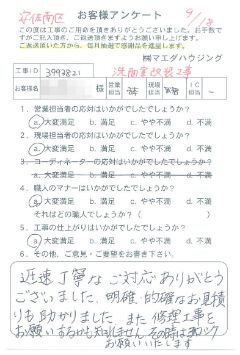 安佐南区
お客様アンケート
9/18
この度は工事のご用命を頂きありがとうございました。お手数で
すがご記入頂き、ご返送頂きますようお願い申し上げます。
ご返送頂いた方から、毎月抽選で感謝品を進呈します。
㈱マエダハウジング
工事ID 3993821 洗面室改装工事
お客様名 様 営業担当 工事担当
1. 営業担当者の応対はいかがでしたでしょうか?
a.大変満足 b.満足 c.やや不満 d.不満
2. 工事担当者の応対はいかがでしたでしょうか?
a.大変満足 b.満足 c.やや不満 d.不満
3. コーディネーターの応対はいかがでしたでしょうか?
a.大変満足 b.満足 c.やや不満 d.不満
4. 職人のマナーはいかがでしたでしょうか?
a.大変満足 b.満足 c.やや不満 d.不満
それはどの職人でしょうか( )
5. 工事の仕上がりはいかがでしたでしょうか?
a.大変満足 b.満足 c.やや不満 d.不満
6. その他、ご意見、ご要望をお聞かせ下さい。
迅速丁寧なご対応ありがとう
ございました。明確、的確なお見積
りも助かりました。また修理工事を
お願いするかも知れません。その時はヨロシク
お願いいたします